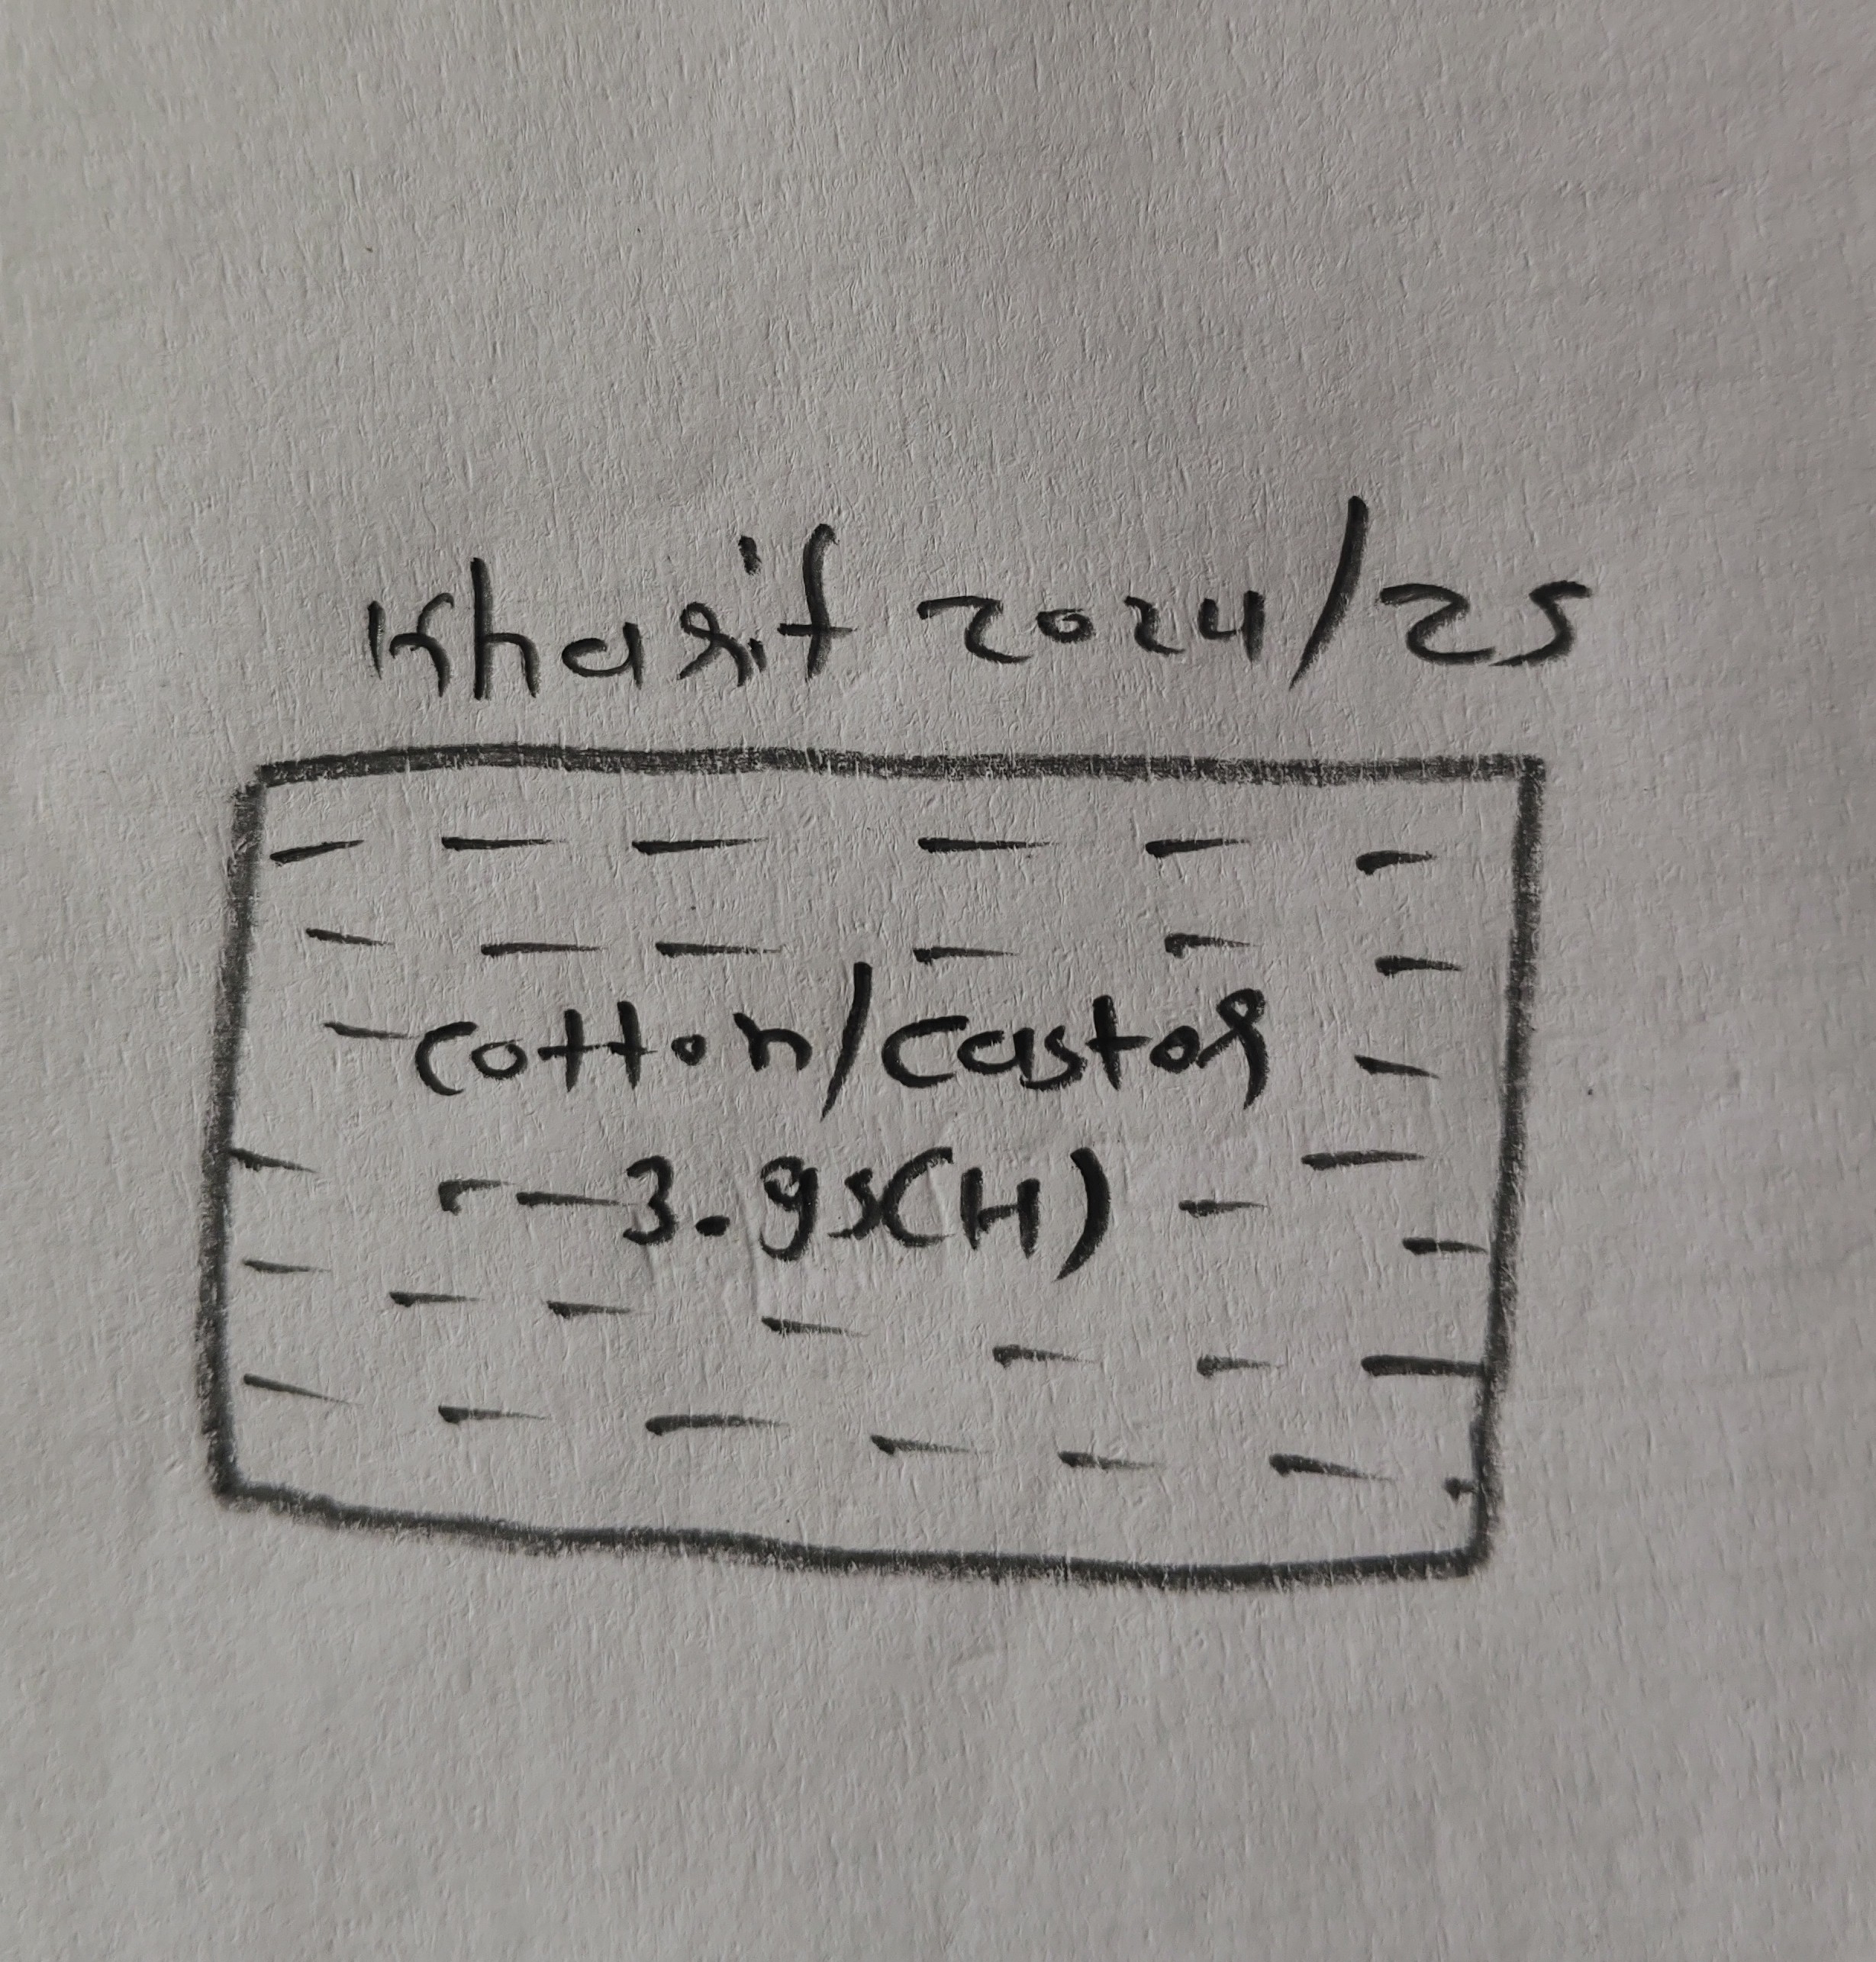 Kharif 2024/25
cotton/castor
3.95(H)